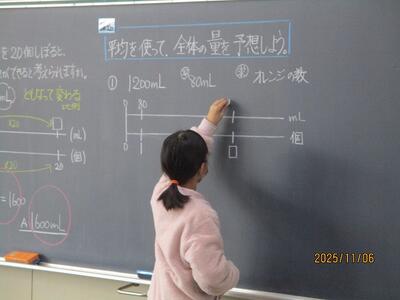 平均を使って、全体の量を予想しよう。
を20個しぼると、
できると考えられますか。
mL
① 1200mL
80mL
オレンジの数
ともなって変わる
比例
×20
(mL)
(個)
×20
20
=1600
A 1600mL
0
80
mL
0
1
個
2025/11/06